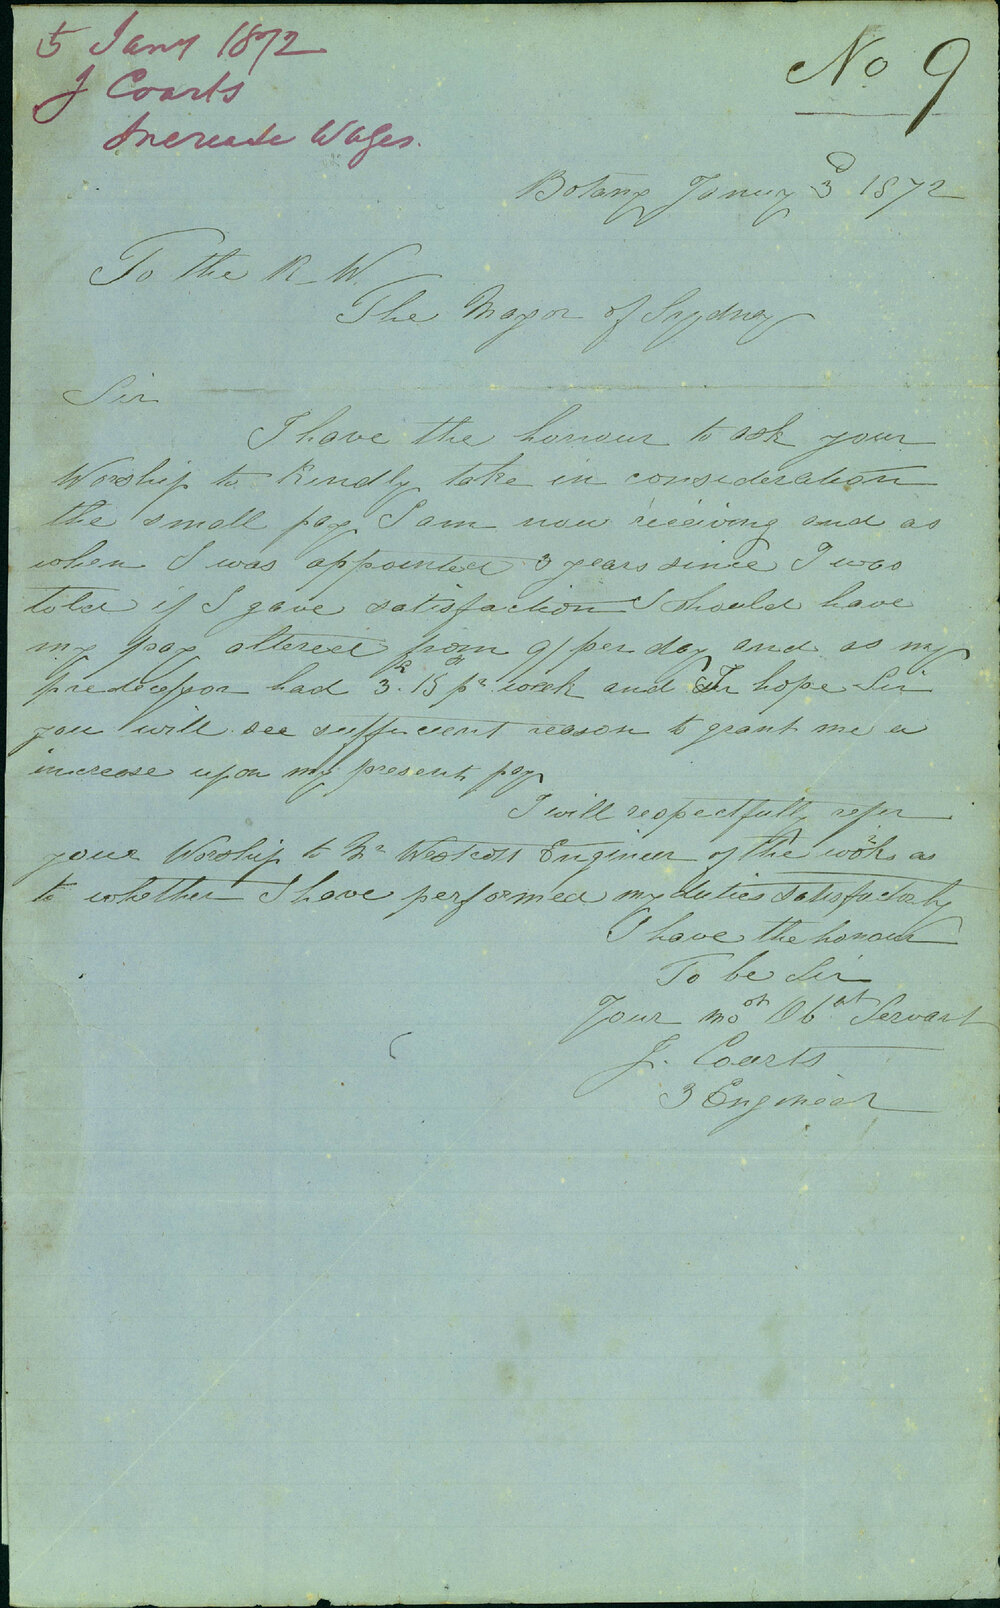 5 Jany 1872
J Coarts
Increase Wages.
No 9
Botany Januy 3d 1872
To the R. W.
The Mayor of Sydney
Sir
I have the honour to ask your
Worship to Kindly take in consideration
the small pay I am now receiving and as
when I was appointed 3 years since I was
told if I gave satisfaction I should have
my pay altered from 9/ per day and as my
predecessor had 3.15 pr week and Sir hope Sir
you will see sufficient reason to grant me a
increase upon my present pay
I will respectfully refer
your Worship to Mr Westcott Engineer of the works as
to whether I have performed my duties satisfactorly
I have the honour
To be Sir
Your most Obat Servant
J. Coarts
3 Engineer